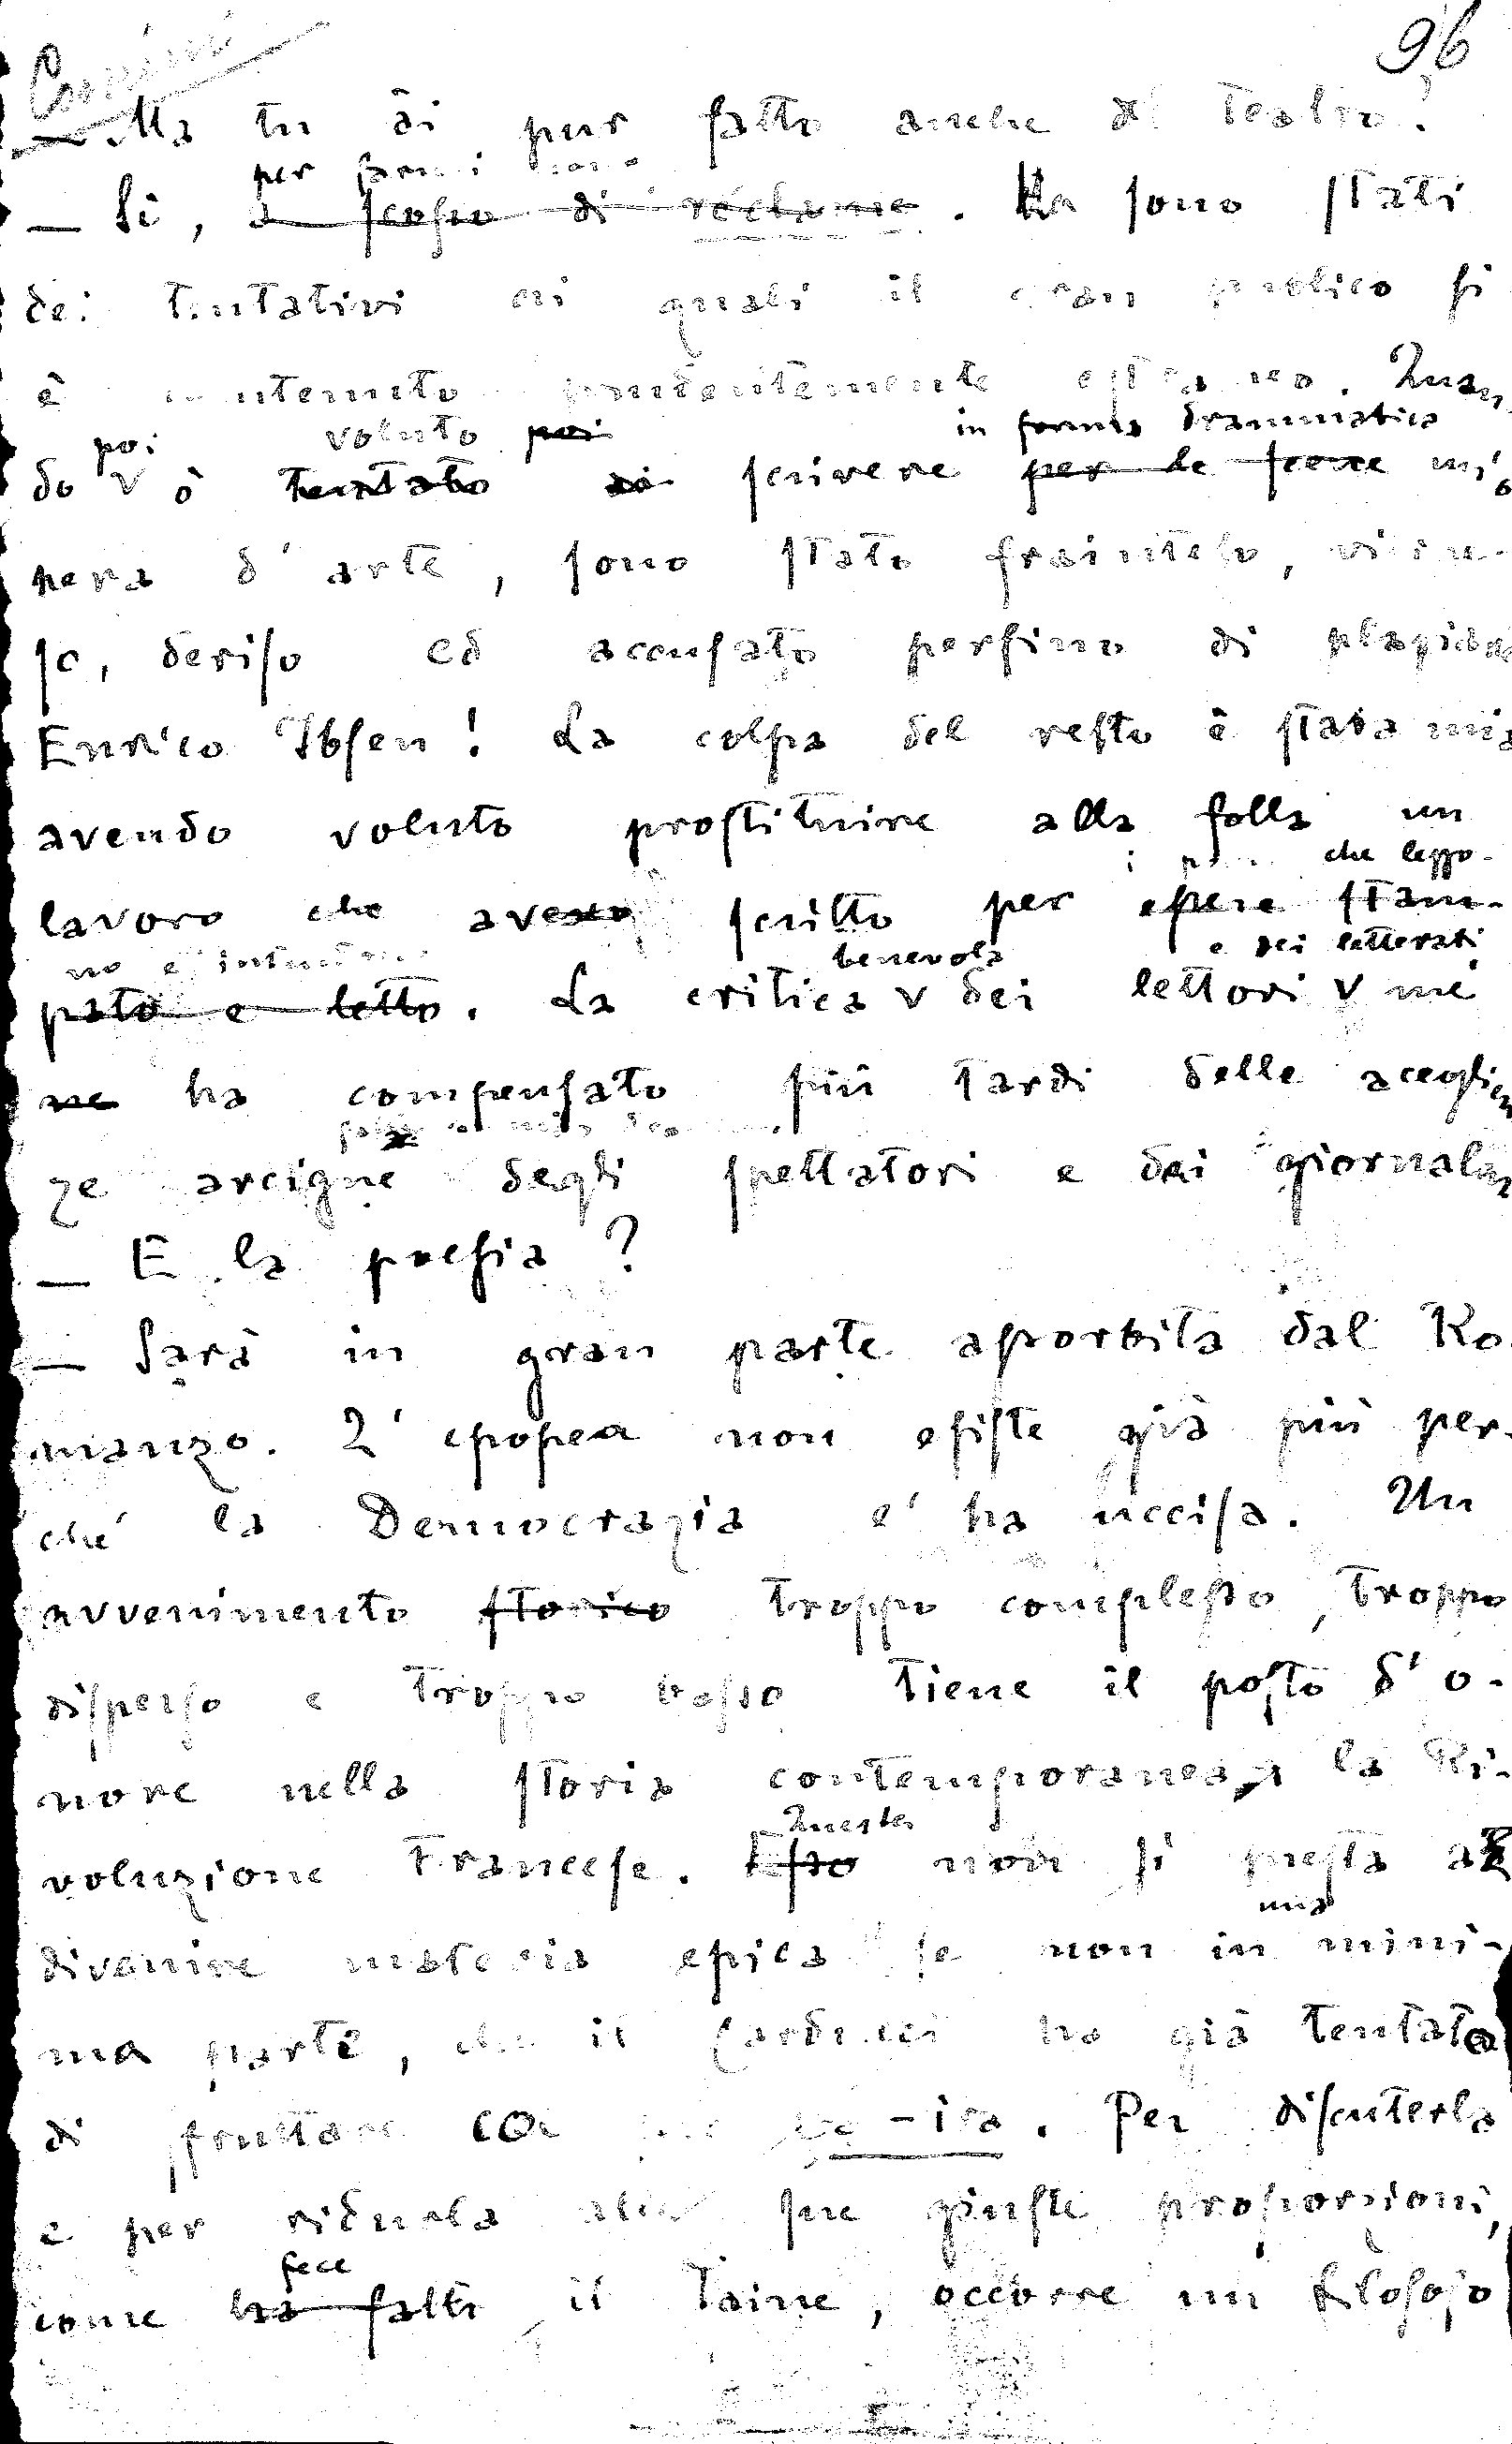 96
— Ma tu ài pur fatto anche del teatro?
per farmi
— Si, a scopo di réclame. Ma sono stati
dei tentativi ai quali il gran publico si
è mantenuto prudentemente estraneo. Quan
poi voluto poi in forma drammatica
do v ò tentato di scrivere per le scene un'o
pera d'arte, sono stato frainteso, vilipe-
so, deriso ed accusato perfino di plagiare
Enrico Ibsen! La colpa del resto è stata mia
avendo voluto prostituire alla folla un
i pochi che leggo-
lavoro che avevo scritto per essere stam-
no e intendono benevola e dei letterati
pato e letto. La critica v dei lettori v me
ne ha compensato più tardi delle acceglien
ze arcigne degli spettatori e dei giornalisti
— E la poesia?
— Sarà in gran parte assorbita dal Ro
manzo. L'epopea non esiste già più per-
chè la Democrazia l'ha uccisa. Un
avvenimento storico troppo complesso, troppo
disperso e troppo basso tiene il posto d'o-
nore nella storia contemporanea, la Ri-
Questa
voluzione Francese. Esso non si presta a
una
divenire materia epica se non in mini-
ma parte, che il Carducci ha già tentato
di sfruttare col suo Ça-ira. Per discuterla
e per ridurla alle sue giuste proporzioni,
fece
come ha fatto il Taine, occorre un filosofo